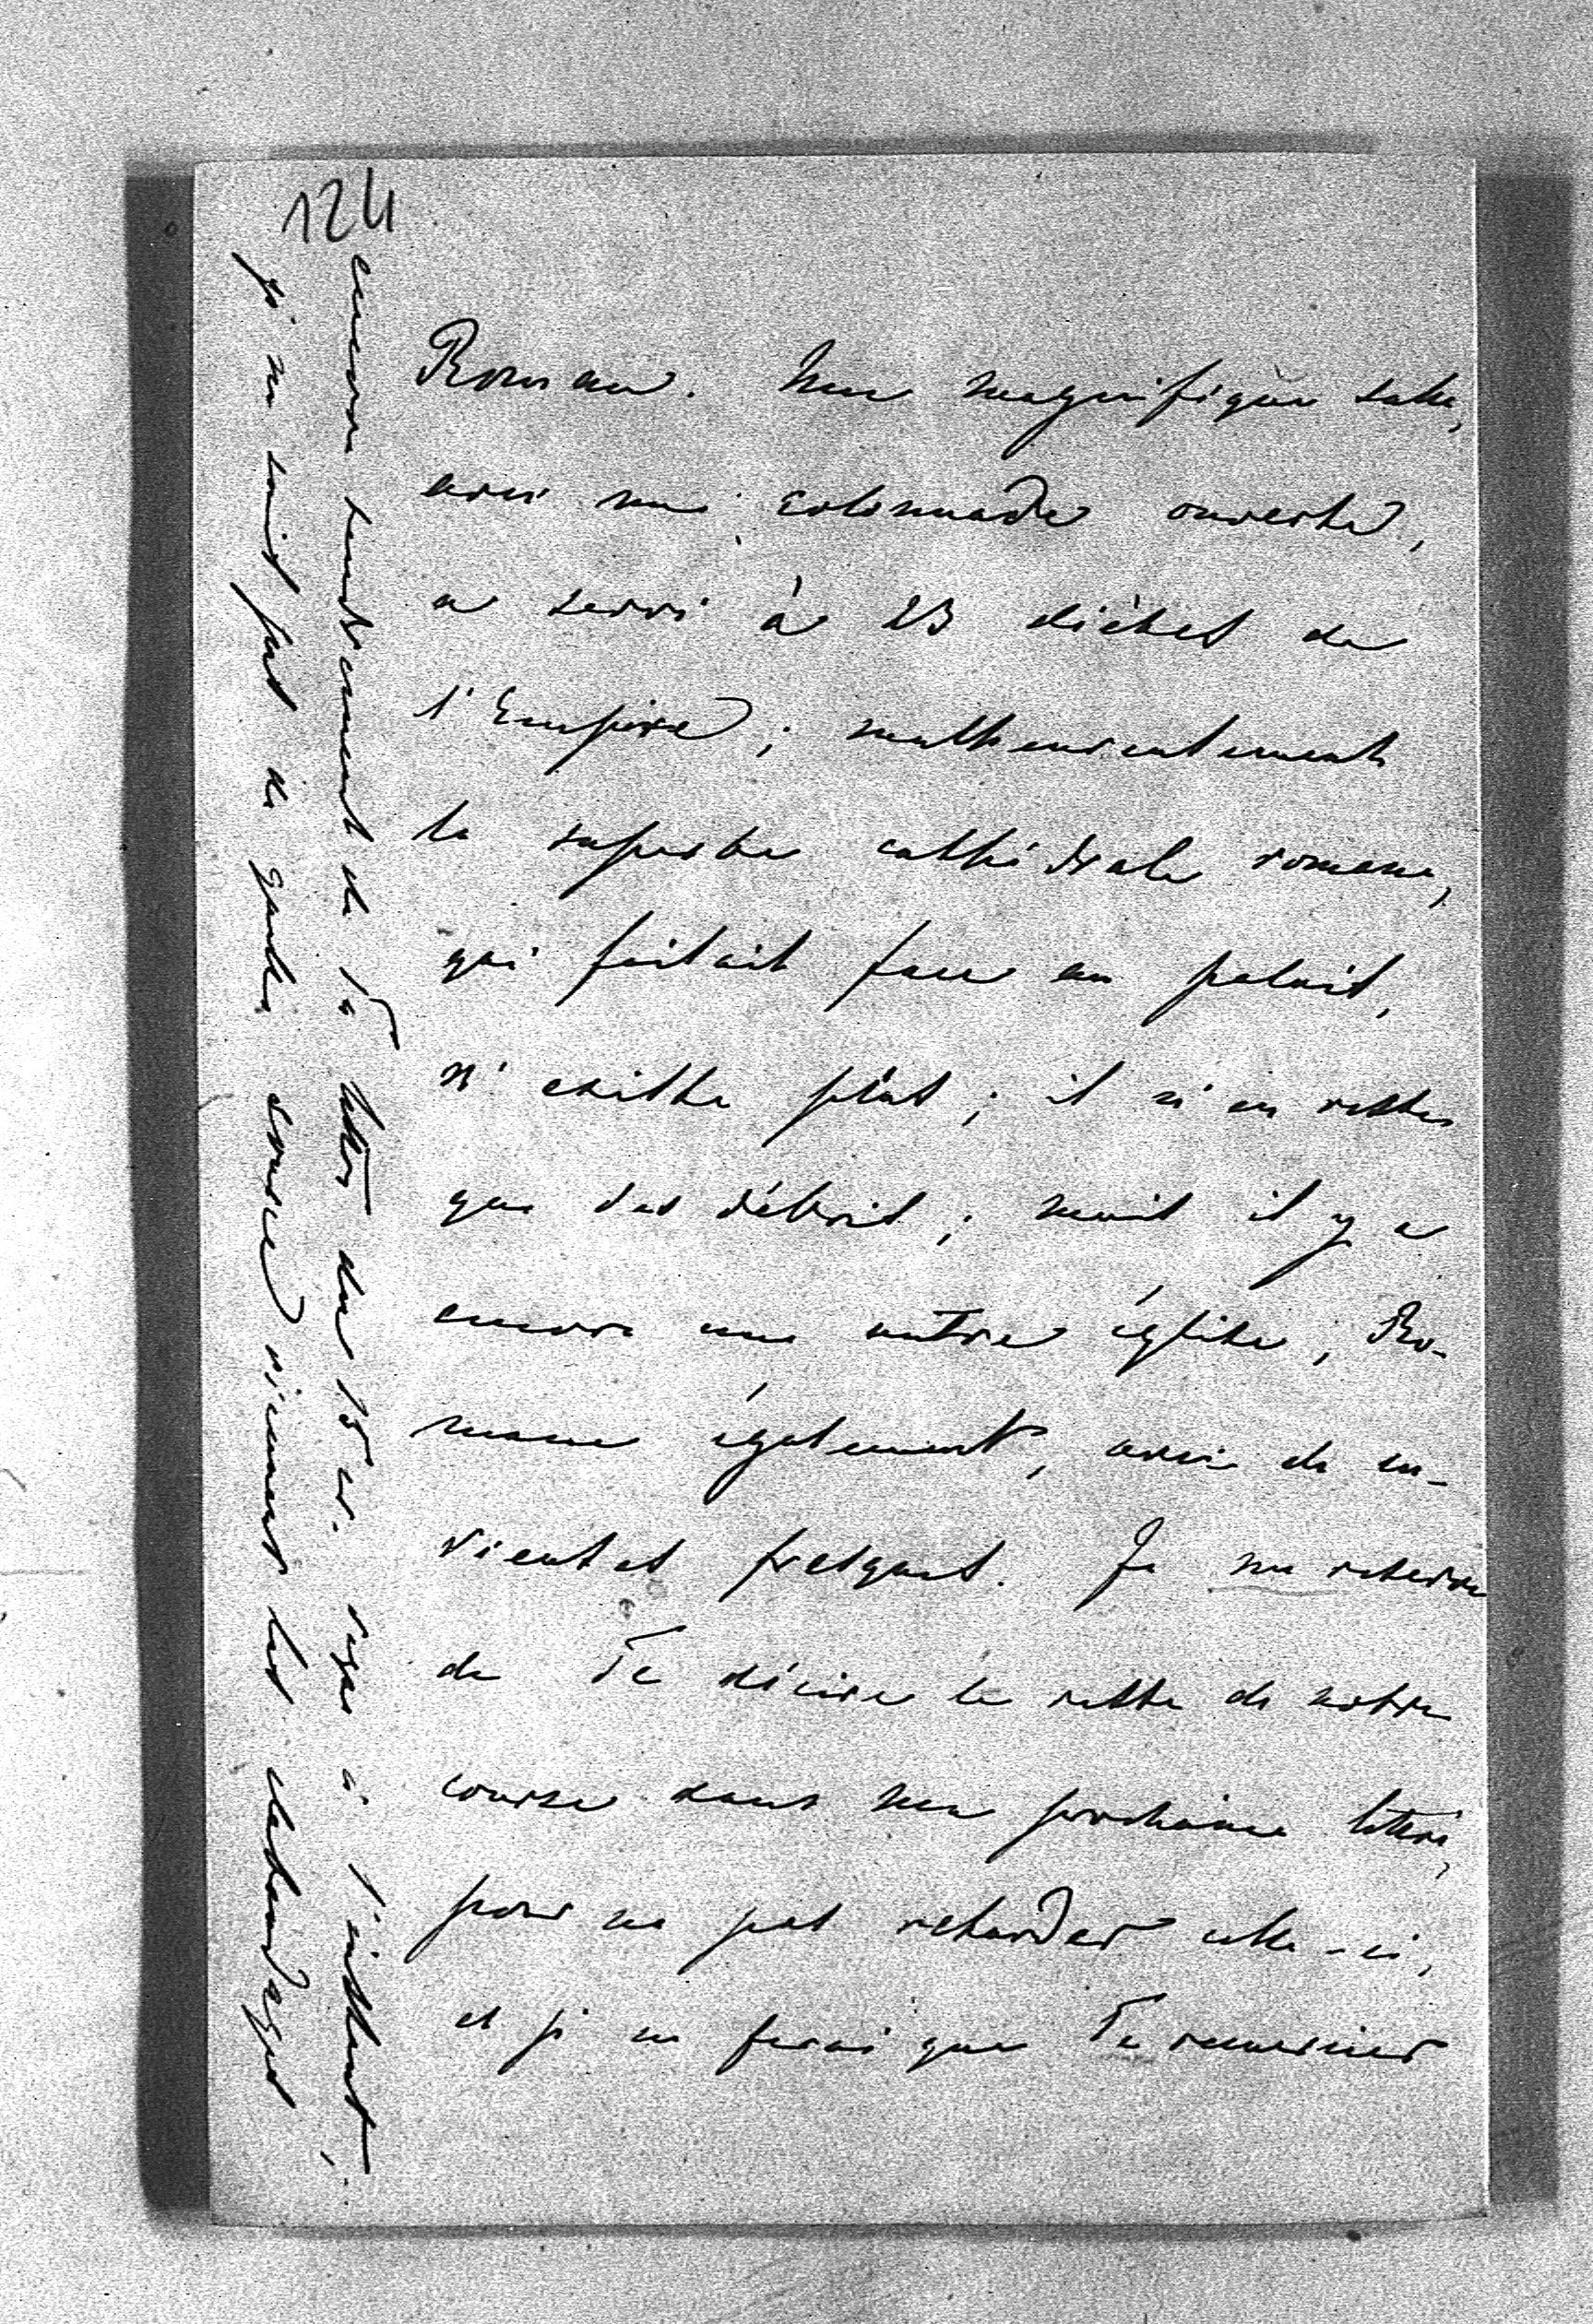 124
Roman. Une magnifique salle,
avec une colonnade ouverte,
a servi à 23 diètes de
l'Empire; malheureusement
la superbe cathédrale romane,
qui faisait face au palais,
n'existe plus; il n'en reste
que des débris; mais il y a
encore une autre église, Ro-
mane également, avec de cu-
rieuses fresques. Je me réserve
de Te décrire le reste de notre
course dans ma prochaine lettre,
pour ne pas retarder celle-ci,
et je ne ferai que Te remercier
encore tendrement de Ta lettre du 15 ct. reçue à l'instant;
je ne suis pas de garde

les